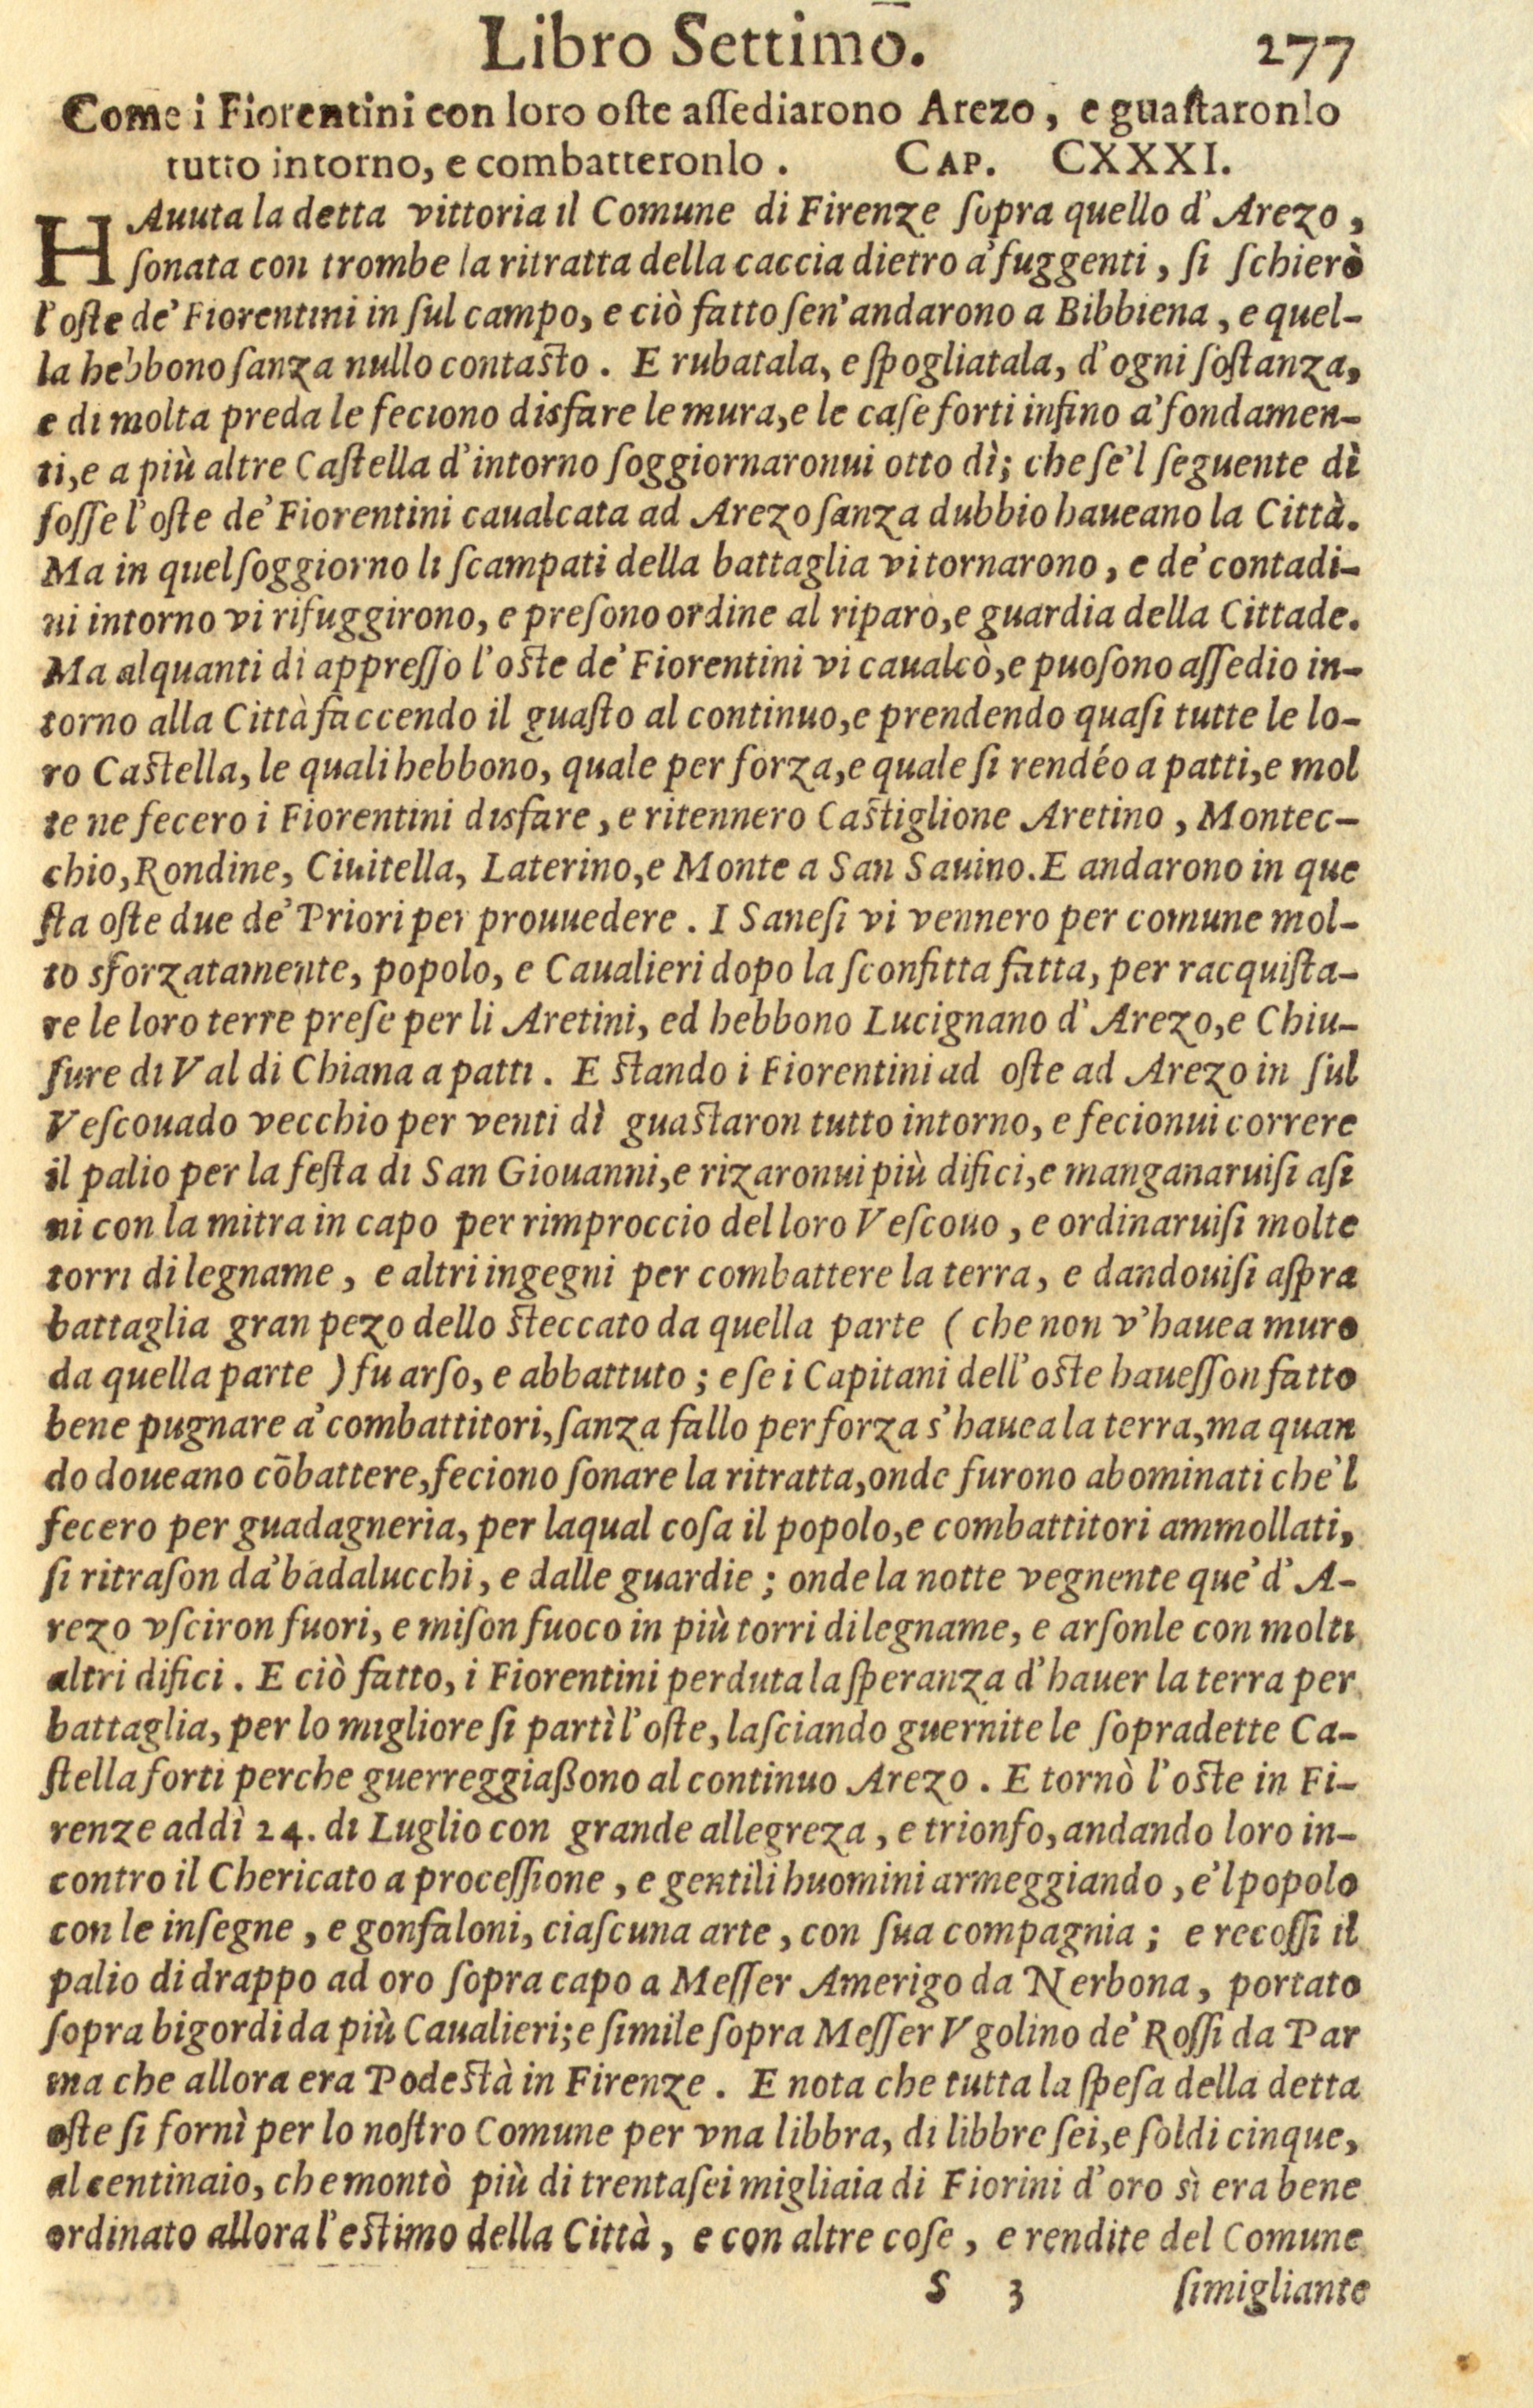 Libro Settimo. 277
Come i Fiorentini con loro oſte aſſediarono Arezo, e guaſtaronlo
tutto intorno, e combatteronlo. CAP. CXXXI.
HAuuta la detta vittoria il Comune di Firenze ſopra quello d'Arezo,
ſonata con trombe la ritratta della caccia dietro a' fuggenti, ſi ſchierò
l'oſte de' Fiorentini in ſul campo, e ciò fatto ſen' andarono a Bibbiena, e quel-
la hebbono ſanza nullo contaſto. E rubatala, e ſpogliatala, d'ogni ſoſtanza,
e di molta preda le feciono disfare le mura, e le caſe forti infino a' fondamen-
ti, e a più altre Caſtella d'intorno ſoggiornaronui otto dì; che ſe'l ſeguente dì
foſſe l'oſte de' Fiorentini caualcata ad Arezo ſanza dubbio haueano la Città.
Ma in quel ſoggiorno li ſcampati della battaglia vi tornarono, e de' contadi-
ni intorno vi rifuggirono, e preſono ordine al riparo, e guardia della Cittade.
Ma alquanti dì appreſſo l'oſte de' Fiorentini vi caualcò, e puoſono aſſedio in-
torno alla Città faccendo il guaſto al continuo, e prendendo quaſi tutte le lo-
ro Caſtella, le quali hebbono, quale per forza, e quale ſi rendéo a patti, e mol
te ne fecero i Fiorentini disfare, e ritennero Caſtiglione Aretino, Montec-
chio, Rondine, Ciuitella, Laterino, e Monte a San Sauino. E andarono in que
ſta oſte due de' Priori per prouuedere. I Saneſi vi vennero per comune mol-
to sforzatamente, popolo, e Caualieri dopo la ſconfitta fatta, per racquiſta-
re le loro terre preſe per li Aretini, ed hebbono Lucignano d'Arezo, e Chiu-
ſure di Val di Chiana a patti. E ſtando i Fiorentini ad oſte ad Arezo in ſul
Veſcouado vecchio per venti dì guaſtaron tutto intorno, e fecionui correre
il palio per la feſta di San Giouanni, e rizaronui più difici, e manganaruiſi aſi
ni con la mitra in capo per rimproccio del loro Veſcouo, e ordinaruiſi molte
torri di legname, e altri ingegni per combattere la terra, e dandouiſi aſpra
battaglia gran pezo dello ſteccato da quella parte (che non v'hauea muro
da quella parte) fu arſo, e abbattuto; e ſe i Capitani dell'oſte haueſſon fatto
bene pugnare a' combattitori, ſanza fallo per forza s'hauea la terra, ma quan
do doueano cõbattere, feciono ſonare la ritratta, onde furono abominati che'l
fecero per guadagneria, per laqual coſa il popolo, e combattitori ammollati,
ſi ritraſon da' badalucchi, e dalle guardie; onde la notte vegnente que' d'A-
rezo vſciron fuori, e miſon fuoco in più torri di legname, e arſonle con molti
altri difici. E ciò fatto, i Fiorentini perduta la ſperanza d'hauer la terra per
battaglia, per lo migliore ſi partì l'oſte, laſciando guernite le ſopradette Ca-
ſtella forti perche guerreggiaßono al continuo Arezo. E tornò l'oſte in Fi-
renze addì 24. di Luglio con grande allegreza, e trionfo, andando loro in-
contro il Chericato a proceſſione, e gentili huomini armeggiando, e'l popolo
con le inſegne, e gonfaloni, ciaſcuna arte, con ſua compagnia; e recoſſi il
palio di drappo ad oro ſopra capo a Meſſer Amerigo da Nerbona, portato
ſopra bigordi da più Caualieri; e ſimile ſopra Meſſer Vgolino de' Roſſi da Par
ma che allora era Podeſtà in Firenze. E nota che tutta la ſpeſa della detta
oſte ſi fornì per lo noſtro Comune per vna libbra, di libbre ſei, e ſoldi cinque,
al centinaio, che montò più di trentaſei migliaia di Fiorini d'oro sì era bene
ordinato allora l'eſtimo della Città, e con altre coſe, e rendite del Comune
S 3 ſimigliante